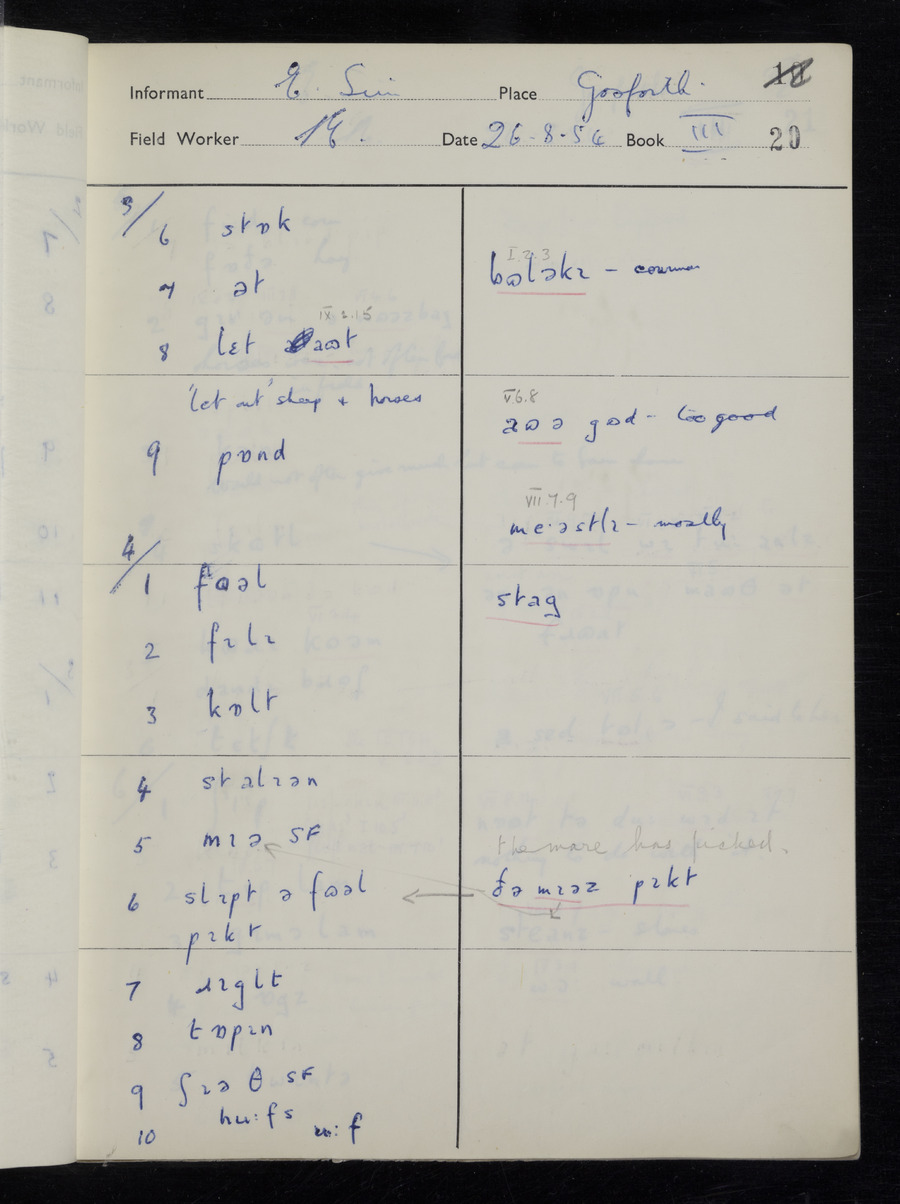 Informant E. Place Gosforth. 18
Field Worker Date 26-8-54 Book III 20
3/
6 stɒk
I.2.3
bɷləkɪ – common
7 ət
IX.2.15
8 lɛt aɷt
'let out' sheep + horses
V.6.8
gɷd – too good
9 pɒnd
VII.7.9
me·əstlɪ – mostly
4/
1 fɷəl
stag
2 fɪlɪ
3 kɒlt
4 stalɪən
5 mɪə SF
the mare has picked.
6 slɪpt ə fɷəl
ðə mɪəz pɪkt
pɪkt
7 ɹɪglt
8 tɒpɪn
9 ʃɪəθ SF
hu:fs
10 u:f